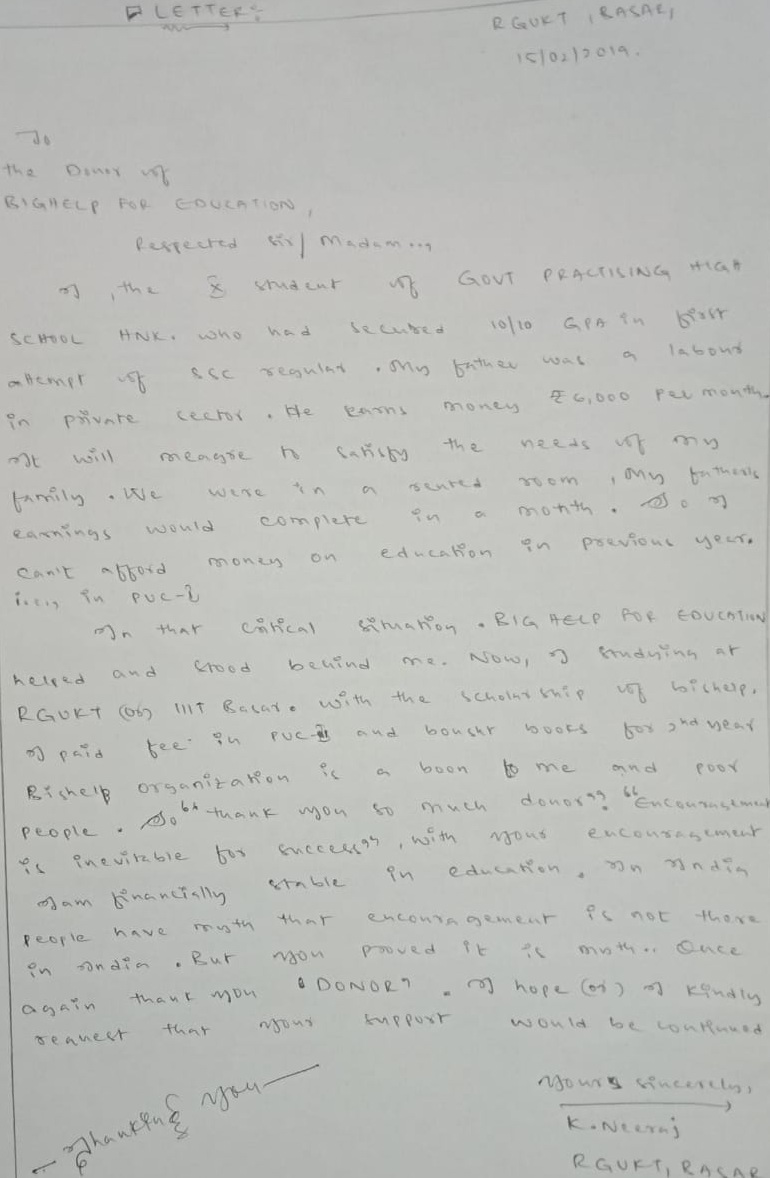 LETTER:
RGUKT, BASAR,
15/02/2019.
To
the Donor of
BIGHELP FOR EDUCATION,
Respected sir/ Madam...
I, the student of GOVT PRACTISING HIGH
SCHOOL HNK. who had secured 10/10 GPA in first
attempt of SSC regular. My father was a labour
in private sector. He earns money ₹6,000 per month.
It will meagre to satisfy the needs of my
family. We were in a rented room, My father's
earnings would complete in a month. So I
can't afford money on education in previous year.
i.e., in PUC-I
In that critical situation. BIG HELP FOR EDUCATION
helped and stood behind me. Now, I studying at
RGUKT (or) IIIT Basar. With the scholarship of bighelp.
I paid fee in PUC-II and bought books for 2nd year
Bighelp organization is a boon to me and poor
people. So "thank you so much donor". "Encouragement
is inevitable for success", with your encouragement
I am financially stable in education. In India
people have myth that encouragement is not there
in India. But you proved it is myth.. Once
again thank you "DONOR". I hope (or) I kindly
request that your support would be continued
Thanking you
Yours sincerely,
K. Neeraj
RGUKT, BASAR